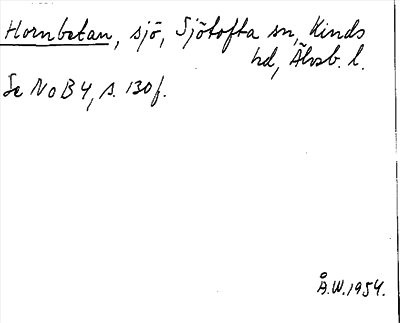 Hornbetan, sjö, Sjötofta sn, Kinds
hd, Älvsb. l.
Se NoB 4, s. 130 f.
Å.W. 1954.